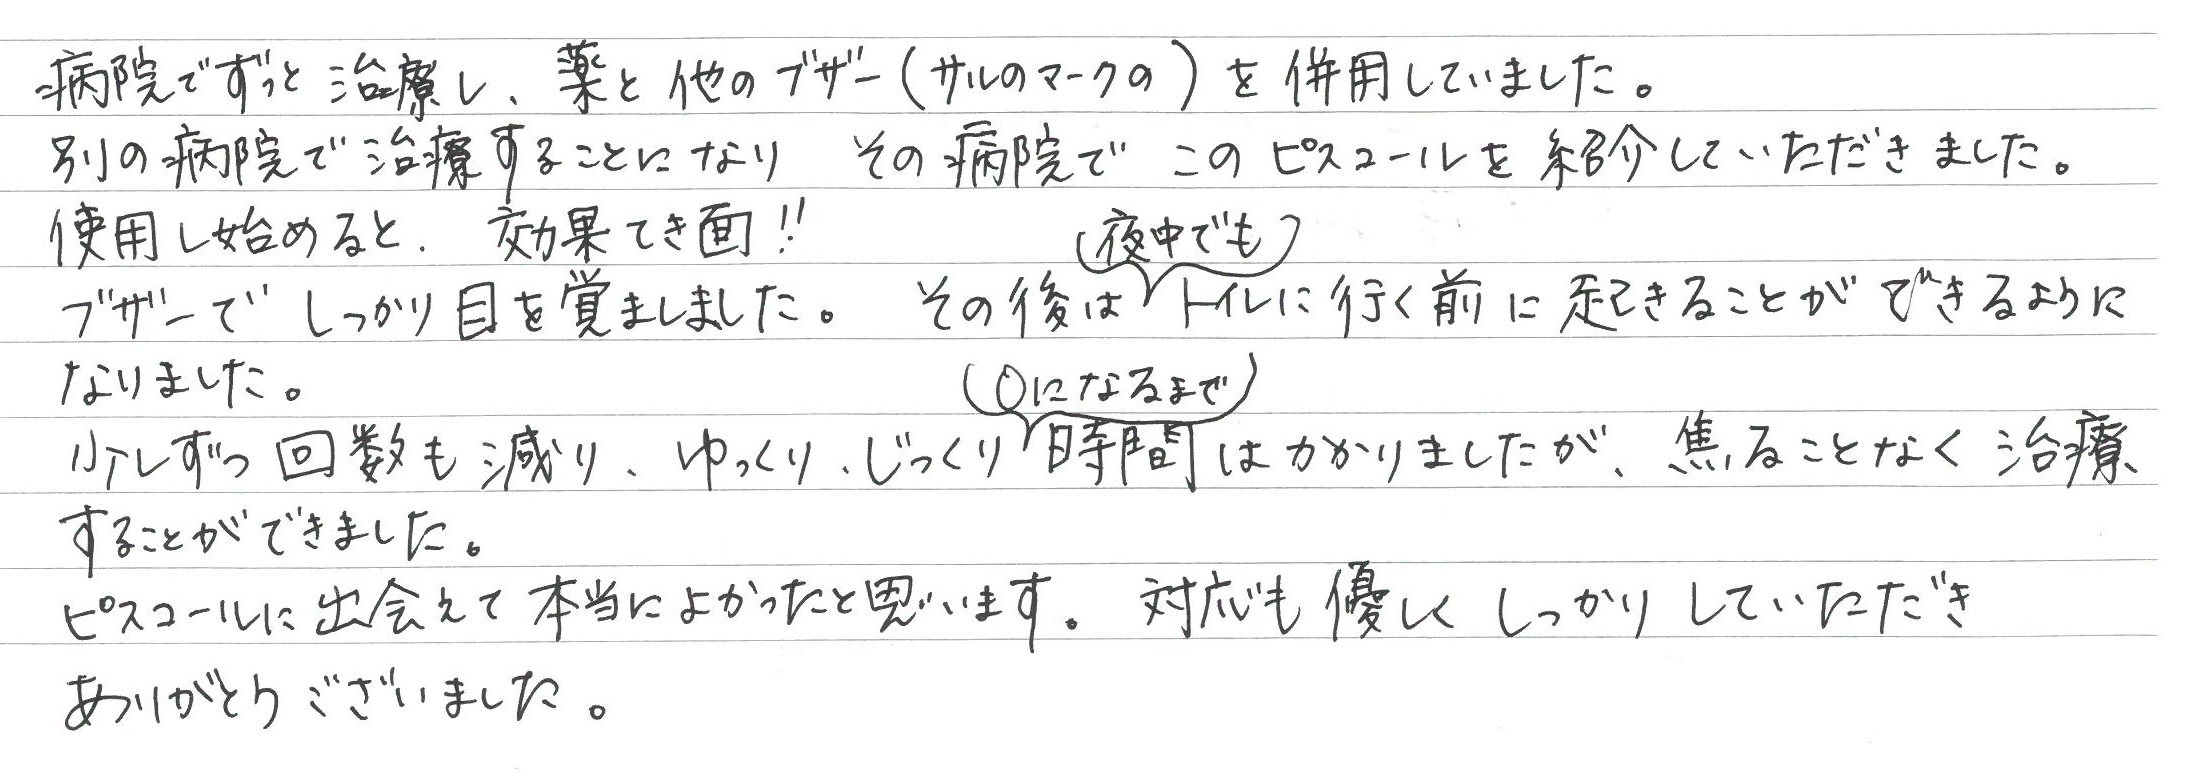 病院でずっと治療し、薬と他のブザー(サルのマークの)を併用していました。
別の病院で治療することになり その病院で このピスコールを紹介していただきました。
使用し始めると、効果てき面!!
ブザーでしっかり目を覚ましました。 その後は(夜中でも)トイレに行く前に起きることができるように
なりました。
少しずつ回数も減り、ゆっくり、じっくり(0になるまで)時間はかかりましたが、焦ることなく治療
することができました。
ピスコールに出会えて本当によかったと思います。 対応も優しくしっかりしていただき
ありがとうございました。